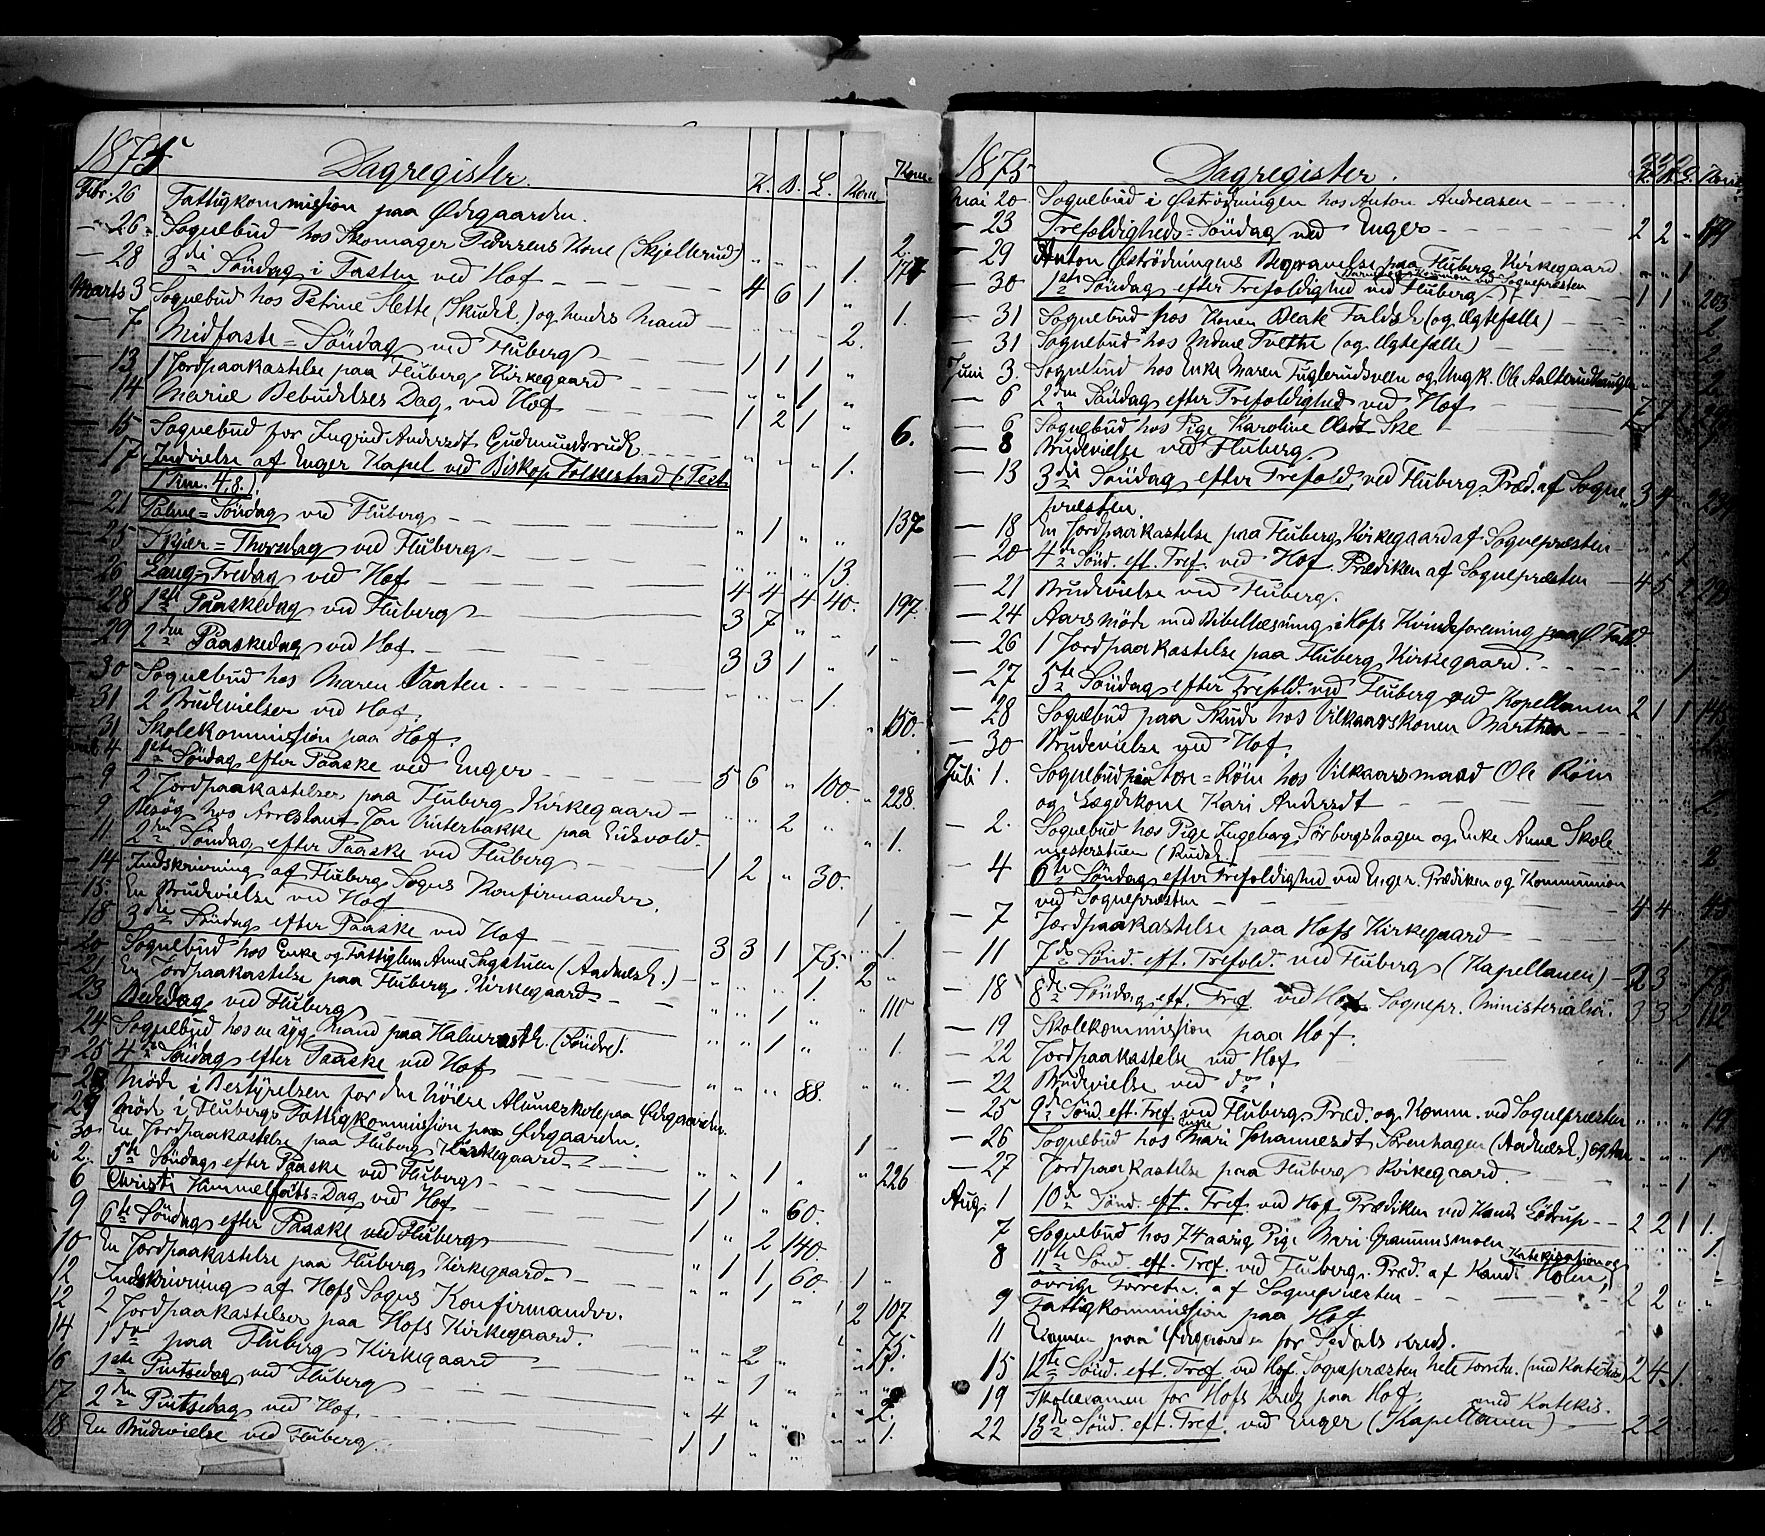 1875
Dagregister.
K. D. L. Kom.
Febr. 26 Fattigkommission paa Ødegaarden.
— 26 Sognebud hos Skomager Pedersens Kone (Skjellerud) 2.
— 28 3die Söndag i Fasten ved Hof 4 6 1
Marts 3 Sognebud hos Petrine Flette (Skudsl.) og hendes Mand 2.
— 7 Midfaste-Söndag ved Fluberg 1 1 1
— 13 1 Jordpaakastelse paa Fluberg Kirkegaard 1
— 14 Mariæ Bebudelses Dag ved Hof 1 2 1
15 Sognebud for Ingrid Andersdt. Gudmundsrud 1.
17 Indvielse af Enger Kapel ved Biskop Folkestad (Text
1 Tim. 4,8.)
21 Palme-Söndag ved Fluberg 1
25 Skjær-Thorsdag ved Fluberg 13.
26 Lang-Fredag ved Hof 4 4 4 40.
28 1ste Paaskedag ved Fluberg 3 7
29 2den Paaskedag ved Hof 3 3 1
30 Sognebud hos Maren Vaaten 1.
31 2 Brudevielser ved Hof.
31 Skolekommission paa Hof.
4 1ste Söndag efter Paaske ved Enger 5 6 100.
9 2 Jordpaakastelser paa Fluberg Kirkegaard 2
9 Besög hos Arrestant Jon Vinterbakke paa Eidsvold
11 2den Söndag efter Paaske ved Fluberg 1 2 30.
14 Indskrivning af Fluberg Sogns Konfirmander.
15 En Brudevielse ved Hof
18 3die Söndag efter Paaske ved Hof 3 3 1 75.
20 Sognebud hos Enke og Fattiglem Anne (Aadnesl.) 1.
21 En Jordpaakastelse paa Fluberg Kirkegaard 1
23 Bededag ved Fluberg 1
24 Sognebud hos en syg Mand paa (Söndre).
25 4de Söndag efter Paaske ved Hof 88.
28 Möde i Bestyrelsen for den höiere Almueskole paa Ødegaarden.
29 Möde i Flubergs Fattigkommission paa Ødegaarden.
30 En Jordpaakastelse paa Fluberg Kirkegaard 1
2. 5te Söndag efter Paaske ved Fluberg 1 1 60.
6 Christi Himmelfarts-Dag ved Hof 1 2 140.
9 6te Söndag efter Paaske ved Fluberg 1 1 60.
10 En Jordpaakastelse paa Fluberg Kirkegaard 1
12 Indskrivning af Hofs Sogns Konfirmander.
12 2 Jordpaakastelser paa Hofs Kirkegaard. 2
14 1 do paa Fluberg Kirkegaard 1
16 1ste Pintsedag ved Fluberg 4
17 2den Pintsedag ved Hof 1 1
18 En Brudevielse ved Fluberg.
Kom.
2.
177
1.
6.
137
197.
1
150.
228.
1.
1
1.
2
110
1.
1
226
1
2 107.
75.
1.
2.
1.
1875
Dagregister.
Mai 20 Sognebud i Øströdningen hos Anton Andreasen
— 23 Trefoldigheds-Söndag ved Enger 2 2
— 29 Anton Øströdningens Begravelse paa Fluberg Kirkegaard 1
— 30 1ste Söndag efter Trefoldighed ved Fluberg 1 1 203
— 31 Sognebud hos Konen Beate (og Ægtefælle) 2
— 31 Sognebud hos Tvethe (og Ægtefælle) 2.
Juni 3. Sognebud hos Enke Maren Fuglerudsveen og Ungk. Ole
— 6 2den Söndag efter Trefoldighed ved Hof
— 6 Sognebud hos Pige Karoline Olsdt.
— 8 Brudevielse ved Fluberg.
— 13 3die Söndag efter Trefold. ved Fluberg. Præd. af Sogne- 3 4
præsten.
— 18 En Jordpaakastelse paa Fluberg Kirkegaard af Sognepræsten 1
— 20 4de Sönd. eft. Tref. ved Hof. Prædiken af Sognepræsten 4 5 2
— 21 Brudevielse ved Fluberg.
— 24 Aarsmöde med Bibellæsning i Hofs Kvindeforening
— 26 1 Jordpaakastelse paa Fluberg Kirkegaard. 1
— 27 5te Söndag efter Trefold. ved Fluberg ved Kapellanen 2 1 1
— 28 Sognebud paa Skude hos Vilkaarskonen Marthea
— 30 Brudevielse ved Hof.
Juli 1. Sognebud paa Store-Röin hos Vilkaarsmand Ole Röin
og Lægdekone Kari Andersdt. 2.
— 2. Sognebud hos Pige Ingeborg Sörbergshagen og Enke Anne Skole-
mesterstuen (Rudsl.) 2
— 4 6te Söndag efter Trefoldighed ved Enger. Prædiken og Kommunion
ved Sognepræsten 4 4
— 7 Jordpaakastelse paa Hofs Kirkegaard 1
— 11 7de Sönd. eft. Trefold. ved Fluberg (Kapellanen) 2 3
— 18 8de Söndag eft. Tref. ved Hof. Sognepr. 3 3 2 112
— 19 Skolekommission paa Hof.
— 22 Jordpaakastelse ved Hof 1
— 22 Brudevielse ved do.
— 25 9de Sönd. eft. Tref. ved Fluberg. Præd. og Komm. ved Sognepræsten
— 26 Sognebud hos Enke Mari Johannesdt. Sörenhagen (Aadnesl.)
— 27 Jordpaakastelse paa Fluberg Kirkegaard. 1
Aug. 1 10de Sönd. eft. Tref. ved Hof Prædiken ved Kand. 2 2 1
7 Sognebud hos 74 aarig Pige Mari 1
8 11te Sönd. eft. Tref. ved Fluberg. Præd. af Kand. Holm, Katekisation og
övrige Forretn. af Sognepræsten 2 2
9 Fattigkommission paa Hof
11 Examen paa Ødegaarden for Kreds.
15 12te Sönd. eft. Tref. ved Hof. Sognepræsten hele Forretn. (med Katekis.) 2 4 1
19 Skoleexamen for Hofs Kreds paa Hof
22 13de Sönd. eft. Tref. ved Enger (Kapellanen) med Katekis. 2 2